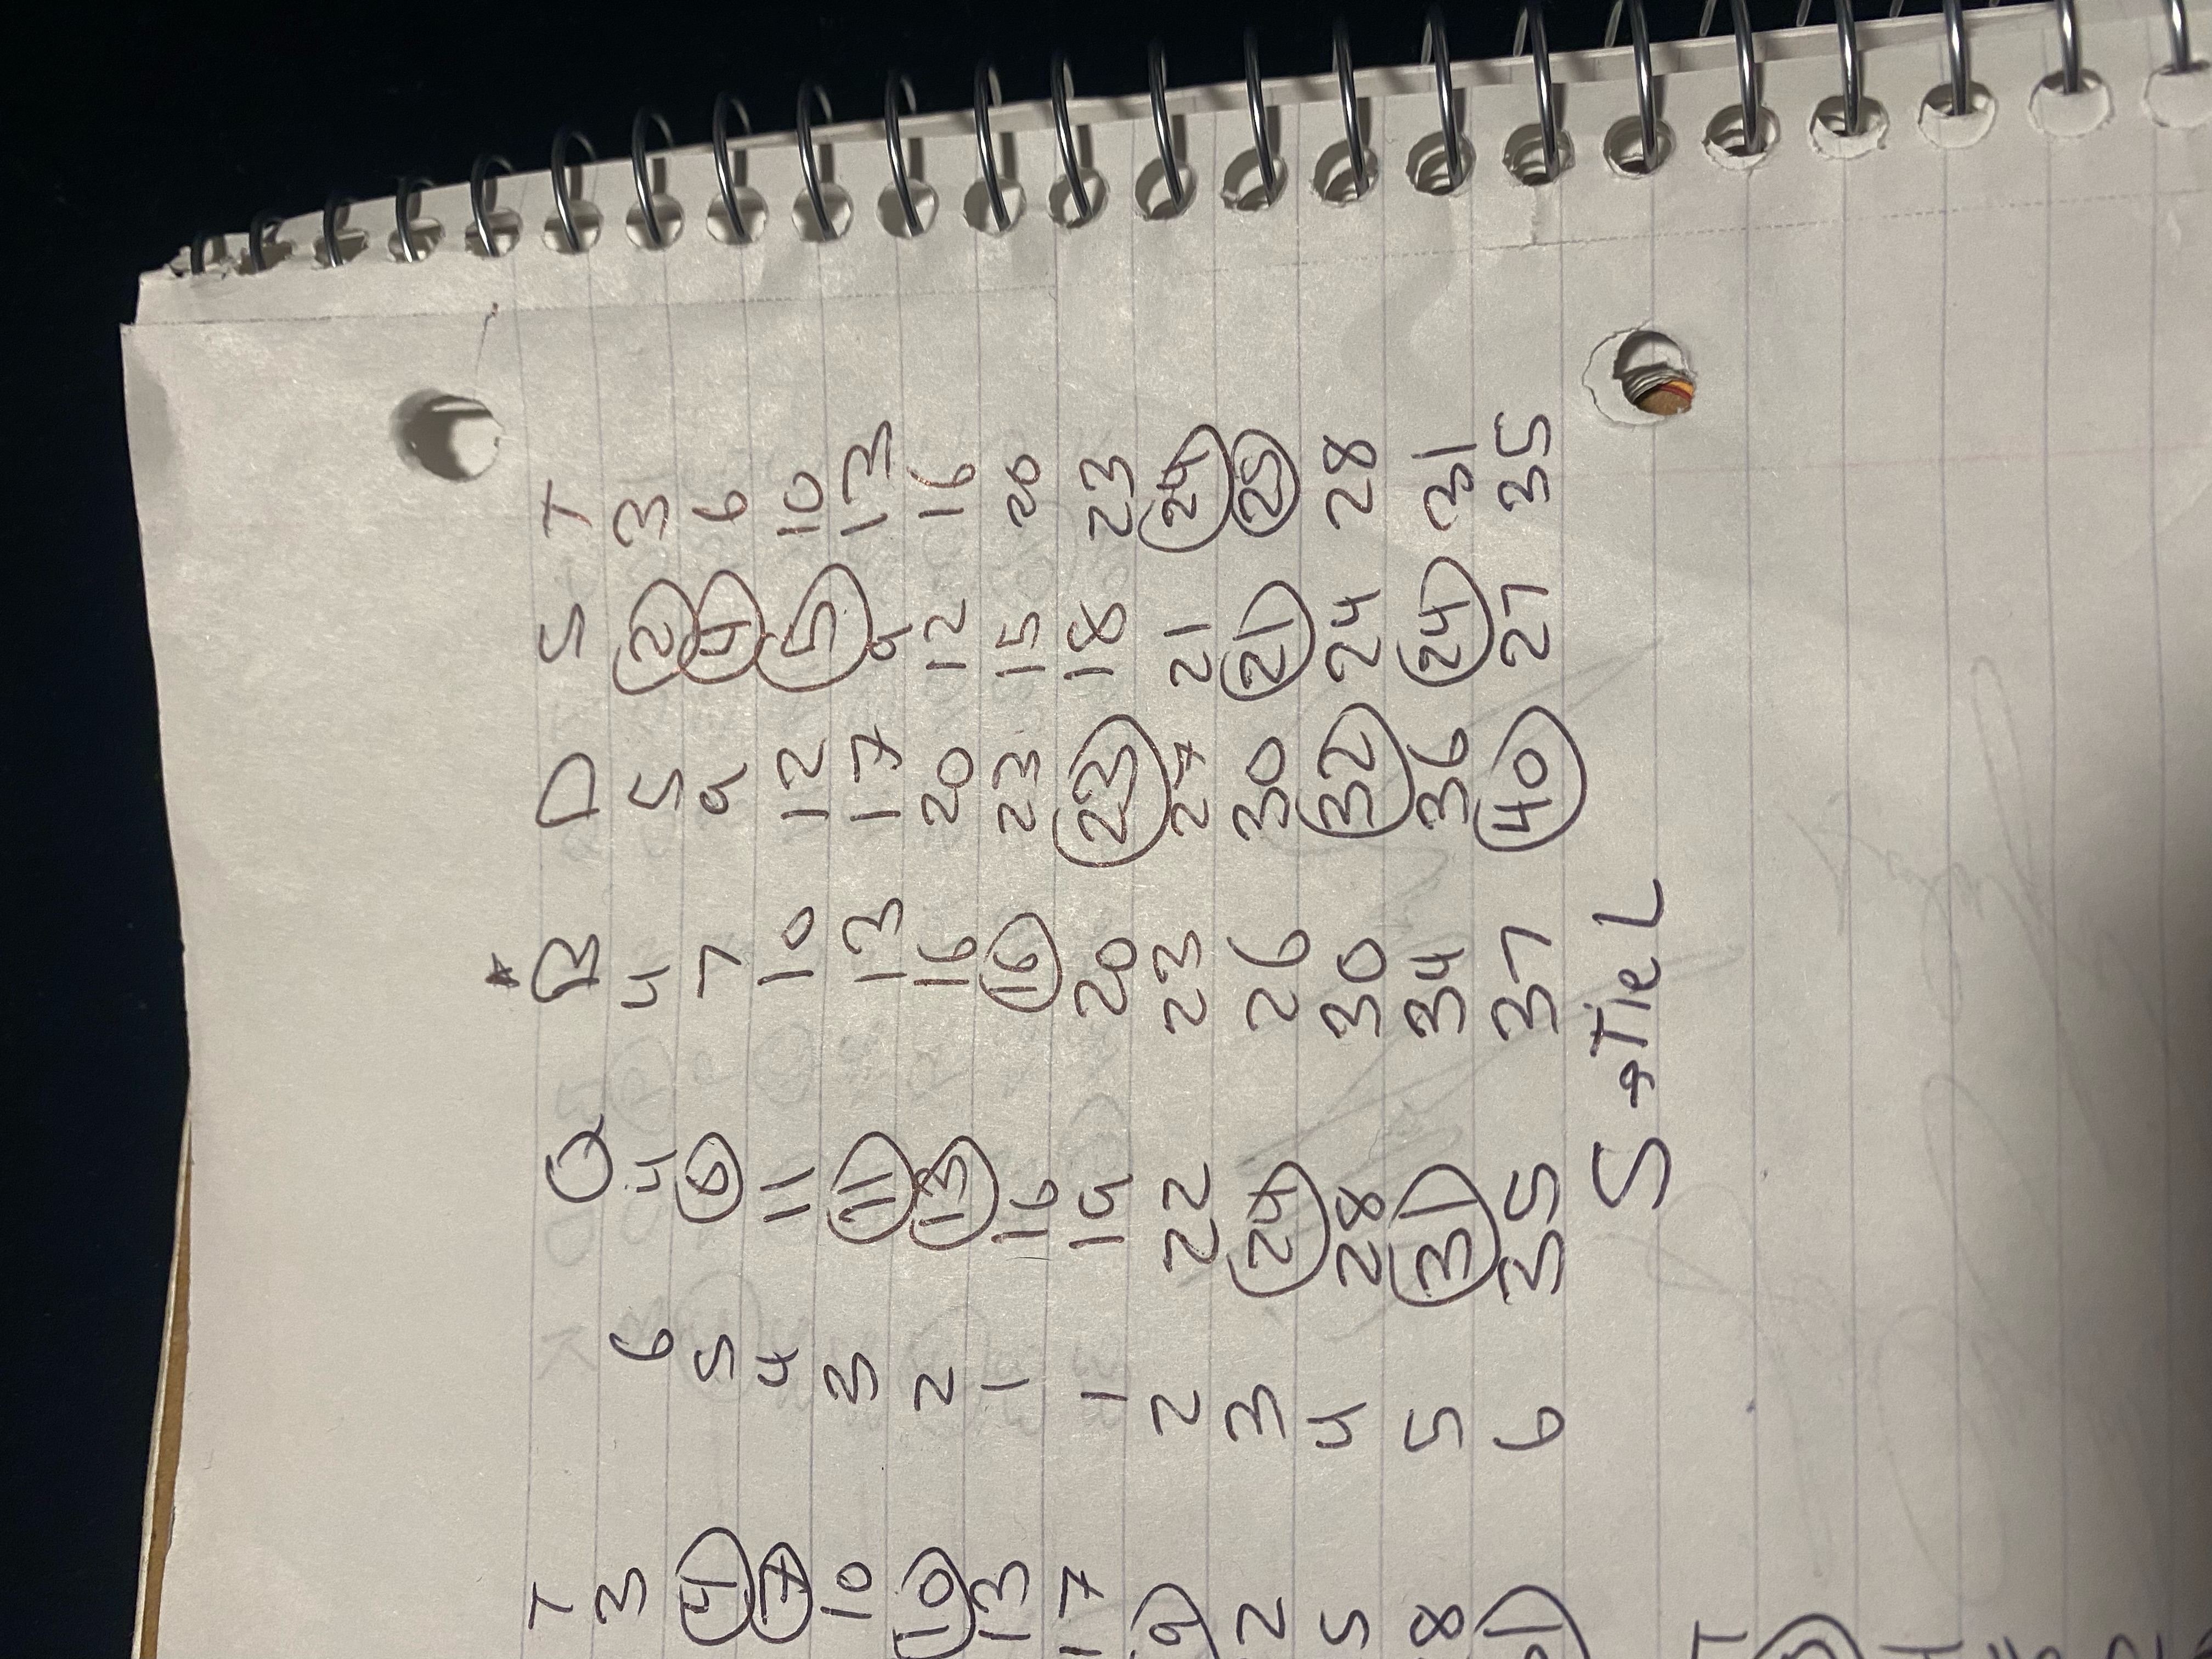 T Q B D S T
3 6 4 4 5 2 3
4 5 6 7 9 4 6
7 4 11 10 12 5 10
10 3 11 13 17 9 13
10 2 13 16 20 12 16
13 1 16 16 23 15 20
17 1 19 20 23 18 23
9 2 22 23 27 21 24
2 3 24 26 30 21 25
5 4 28 30 32 24 28
8 5 31 34 36 24 31
1 6 35 37 40 27 35
S → Tie L
T